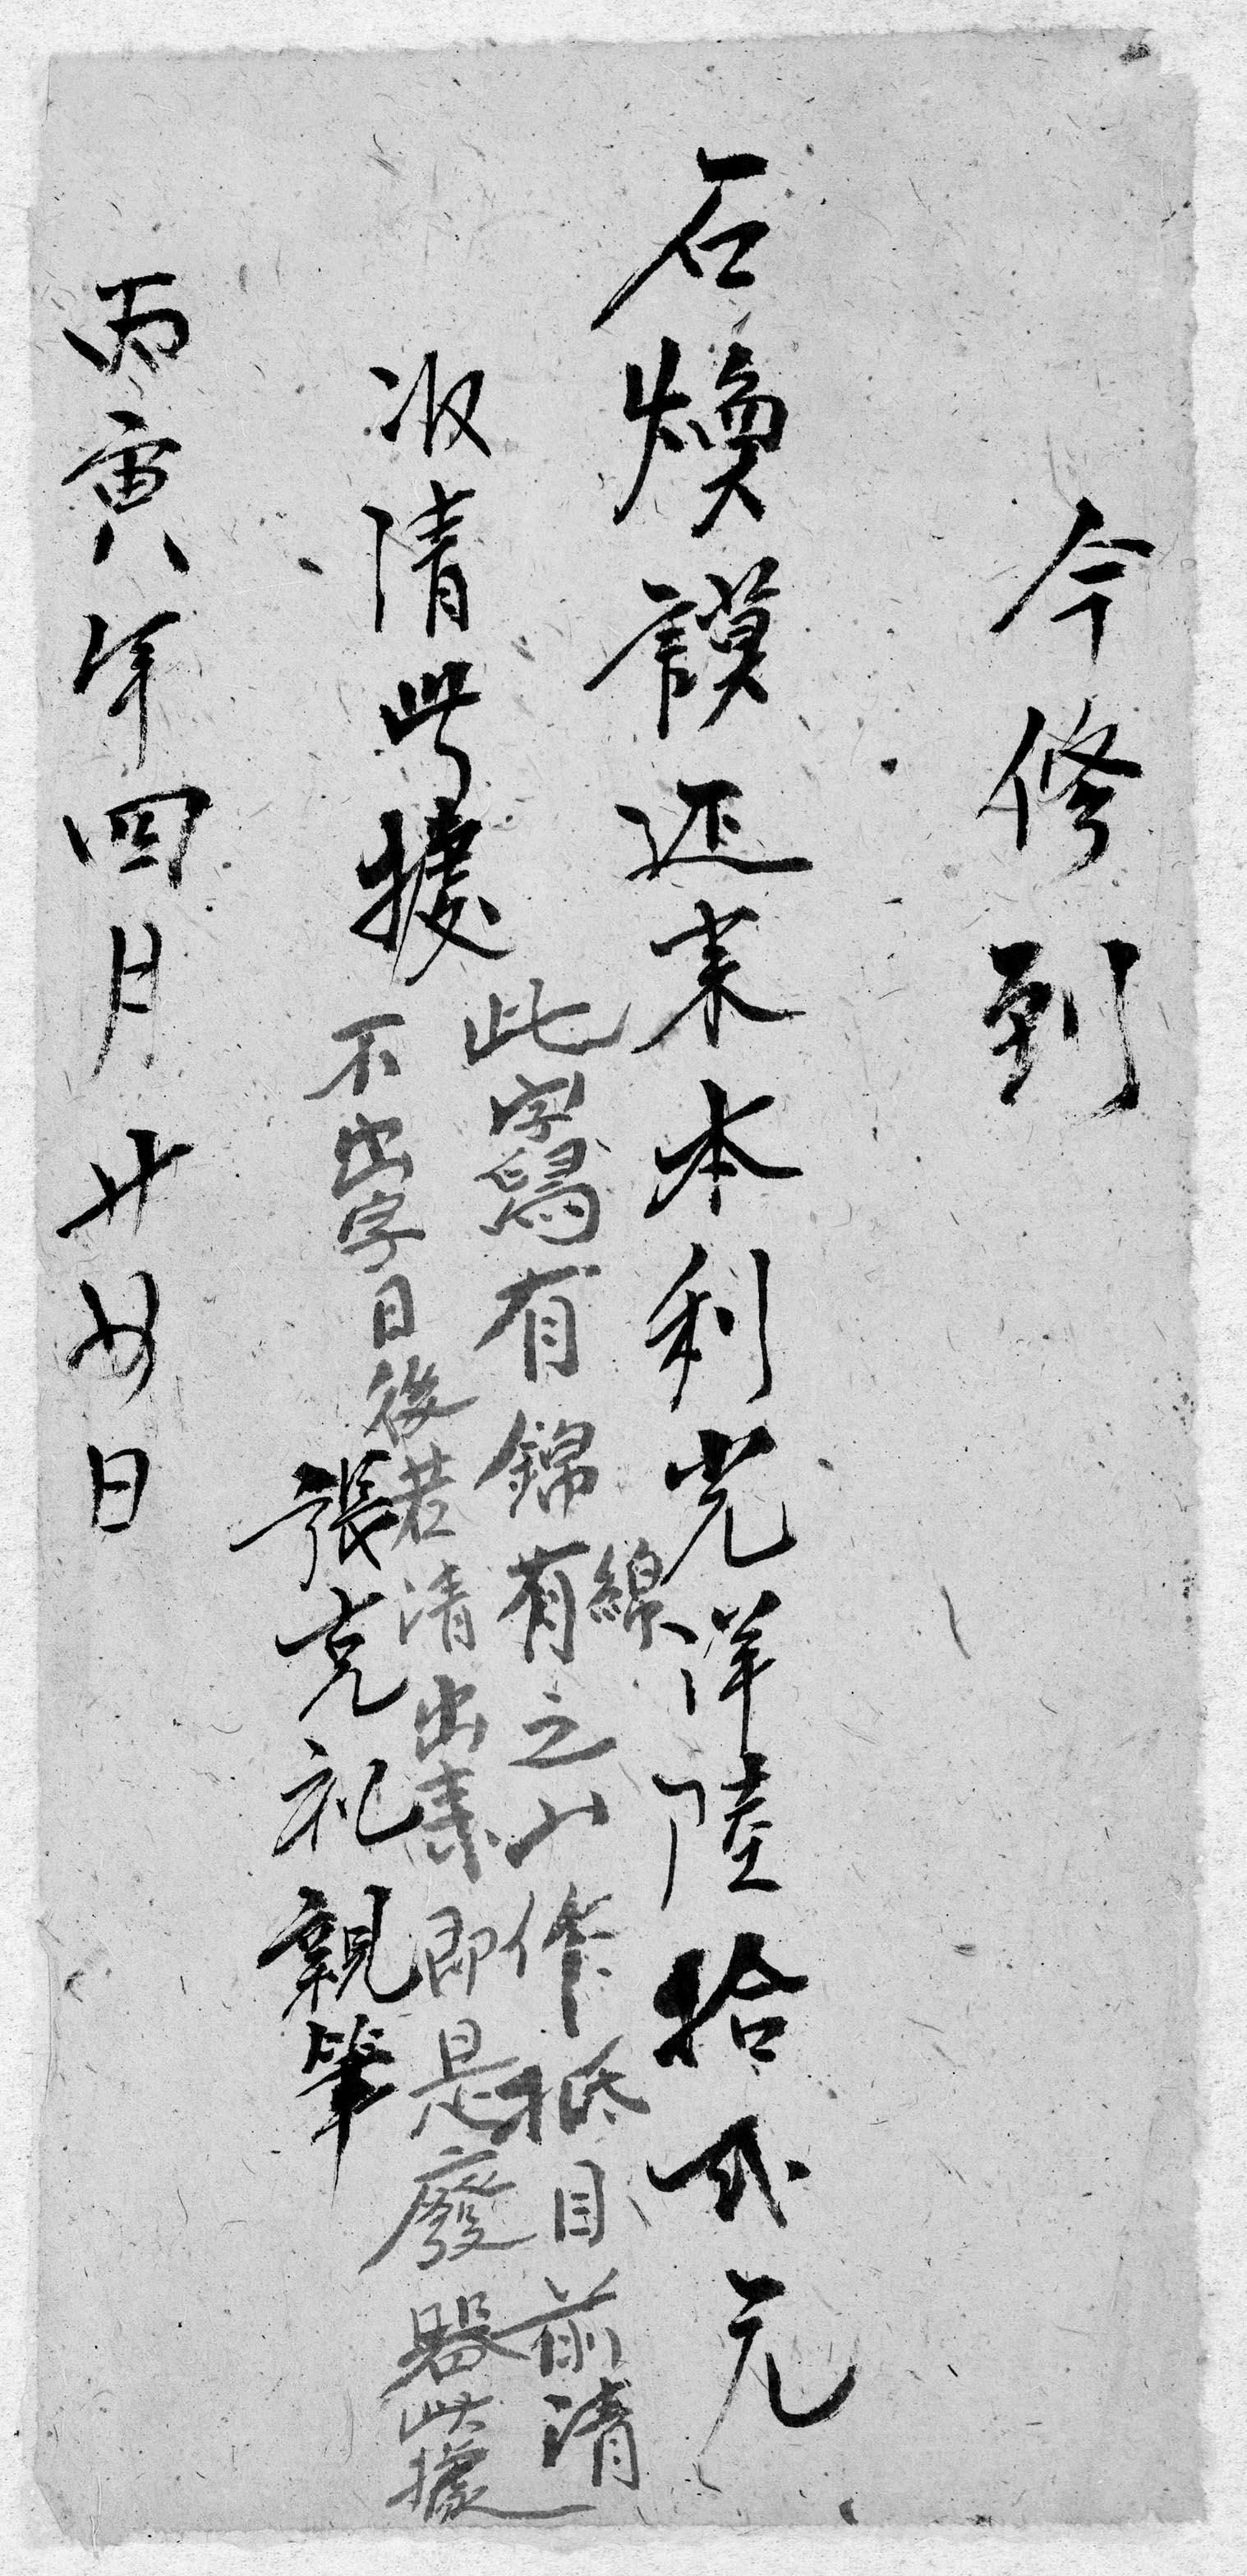 今修到
石煥謨还来本利光洋陸拾弍元
收清此據
此字寫有錦有之山作抵目前清
綿
不出字日後若清出來即是廢器此據
張克礼親筆
丙寅年四月廿 日